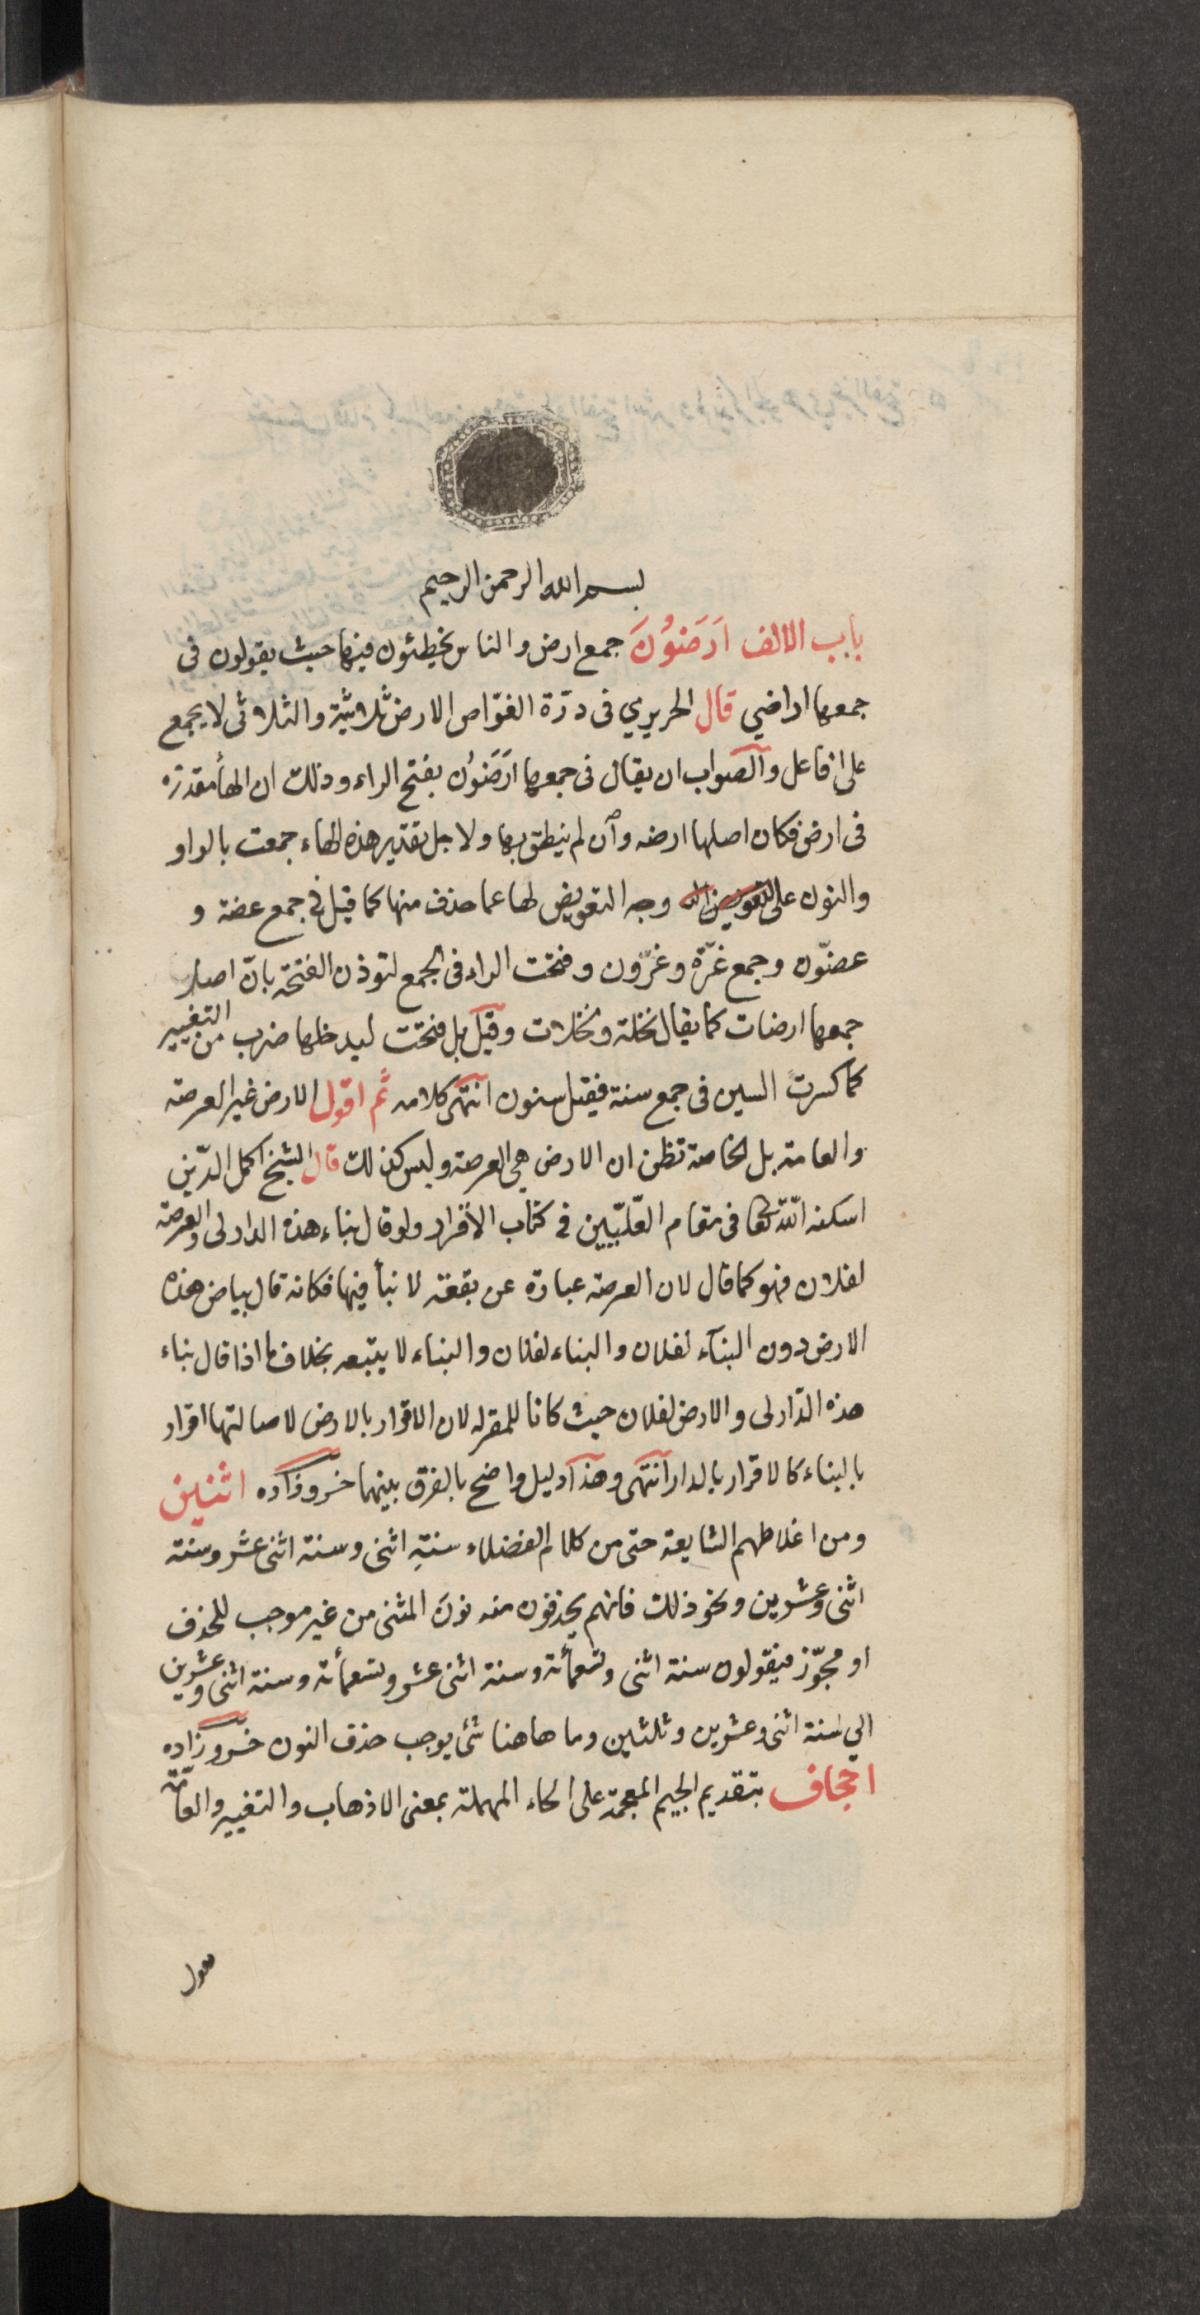 بسم الله الرحمن الرحيم
باب الالف اَرَضوُنَ جمع ارض والناس يخطئون فيها حيث يقولون فى
جمعها اراضي قال الحريري فى درّة الغوّاص الارض ثلاثيّة والثلاثى لا يجمع
على افاعل والصواب ان يقال فى جمعها ارَضَوُن بفتح الراء وذلك ان الهأ مقدرة
فى ارض فكان اصلها ارضه وان لم ينطق بها ولاجل تقدير هذه الهاء جمعت بالواو
والنون على وجه التعويض لها عما حذف منها كما قيل فى جمع عضة و
عضّون وجمع غرّة وغرّون وفتحت الراء فى الجمع لتوذن الفتحة بانّ اصل
جمعها ارضات كما يقال نخلة ونخلات وقيل بل فتحت ليدخلها ضرب من التغيير
كما كسرت السين فى جمع سنة فقيل سنون انتهى كلامه ثم اقول الارض غير العرصة
والعامة بل الخاصة تظن ان الارض هي العرصة وليس كذلك قال الشيخ اكمل الدّين
اسكنه اللّه تعا فى مقام العلّيّين فى كتاب الاقرار ولو قال بناء هذه الدار لى والعرصة
لفلان فهو كما قال لان العرصة عبارة عن بقعة لا بنأ فيها فكانه قال بياض هذه
الارض دون البنآء لفلان والبناء لفلان والبناء لا يتبعه بخلاف ما اذا قال بناء
هذه الدّار لى والارض لفلان حيث كانا للمقرله لان الاقرار بالارض لاصالتها اقرار
بالبناء كالاقرار بالدار انتهى وهذا دليل واضح بالفرق بينهما خسروزاده اثنين
ومن اغلاطهم الشايعة حتى من كلام الفضلاء سنة اثنى وسنة اثنى عشر وسنة
اثنى وعشرين ونحو ذلك فانهم يحذفون منه نون المثنى من غير موجب للحذف
او مجوّز فيقولون سنة اثنى وتسعمأئة وسنة اثنى عشر وتسعمأئة وسنة اثنى وعشرين
الى سنة اثنى وعشرين وثلثين وما هاهنا شئ يوجب حذف النون خسروزاده
احجاف بتقديم الجيم المعجمة على الحاء المهملة بمعنى الاذهاب والتغيير والعامّة